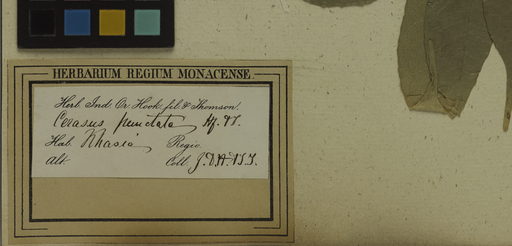 HERBARIUM REGIUM MONACENSE.
Herb. Ind. Or. Hook. fil. & Thomson.
Cerasus punctata, Hf. & T.
Hab. Khasia Regio
Alt. Coll. J.D.H. & T.T.